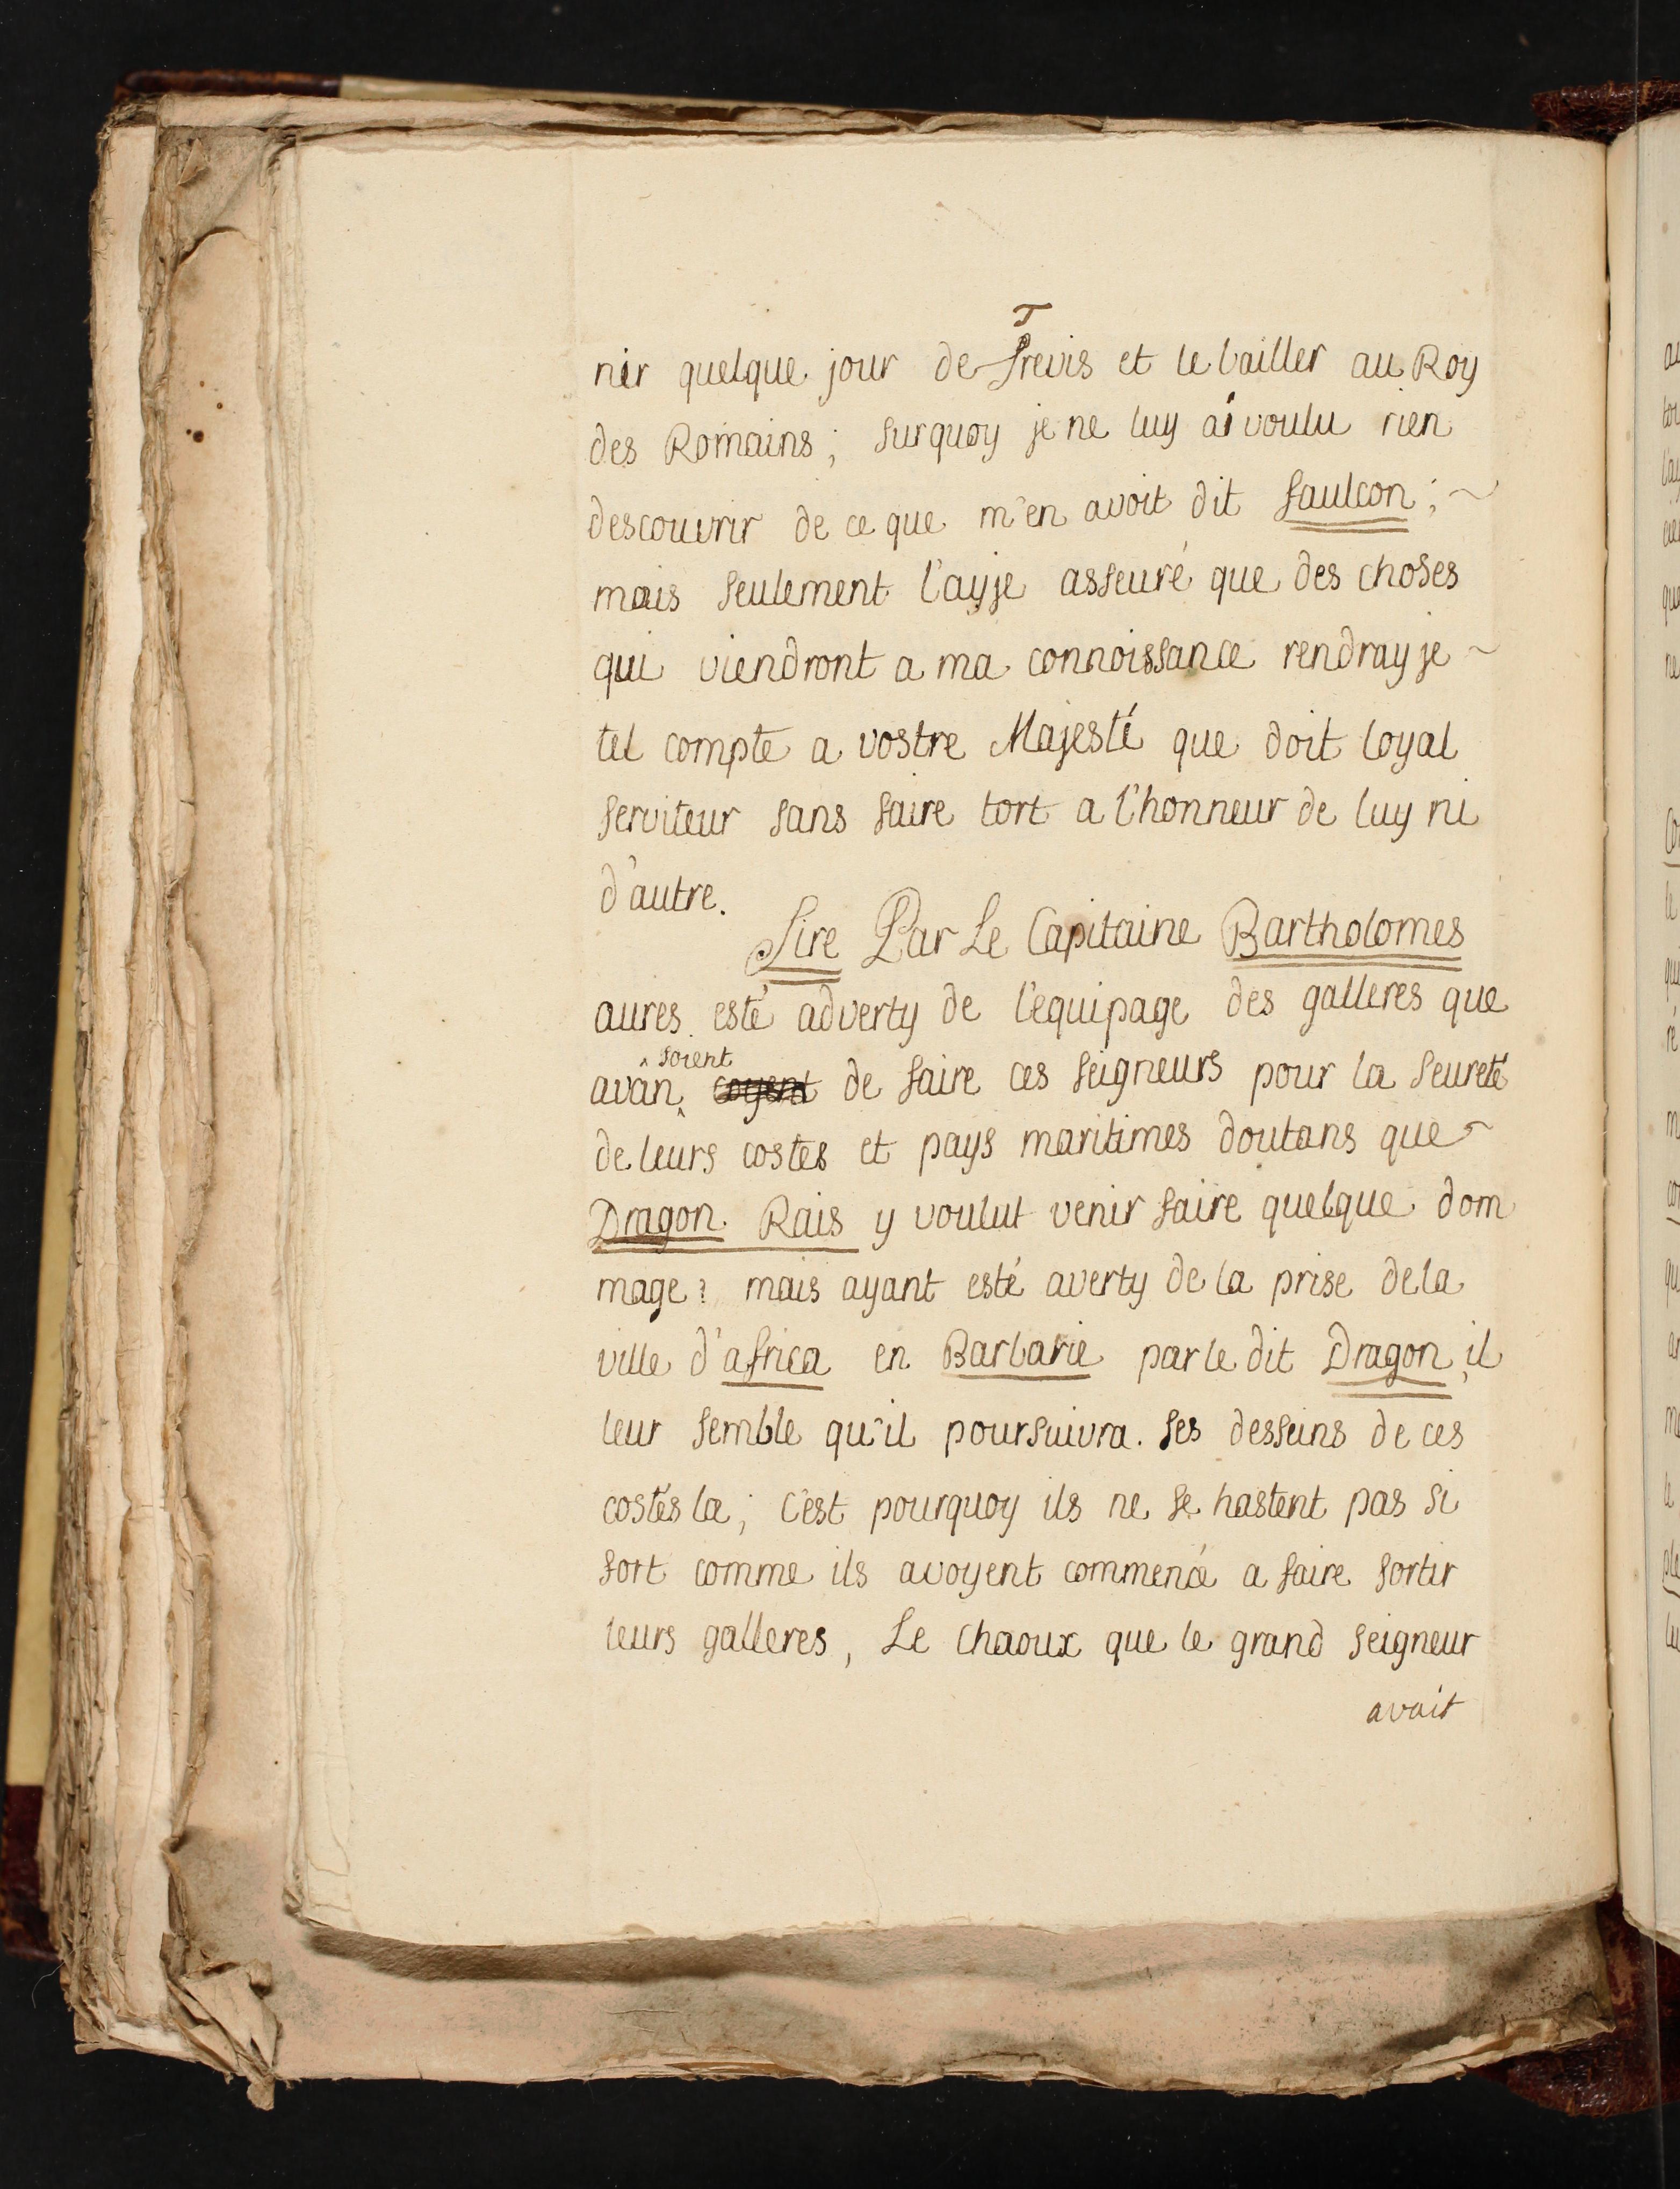 nir quelque jour de Trevis et le bailler au Roy
des Romains ; surquoy je ne luy ai voulu rien
descouvrir de ce que m'en avoit dit faulcon ; ~
mais seulement l'ayje asseuré que des choses
qui viendront a ma connoissance rendray je ~
tel compte a vostre Majesté que doit loyal
serviteur sans faire tort a l'honneur de luy ni
d'autre.
Sire Par Le Capitaine Bartholomes
aures esté adverty de l'equipage des galleres que
avan soient de faire ces seigneurs pour la seureté
de leurs costes et pays maritimes doutans que ~
Dragon Rais y voulut venir faire quelque dom
mage : mais ayant esté averty de la prise de la
ville d'africa en Barbarie par le dit Dragon, il
leur semble qu'il poursuivra. ses desseins de ces
costés la ; c'est pourquoy ils ne se hastent pas si
fort comme ils avoyent commencé a faire sortir
leurs galleres, Le Chaoux que le grand seigneur
avait